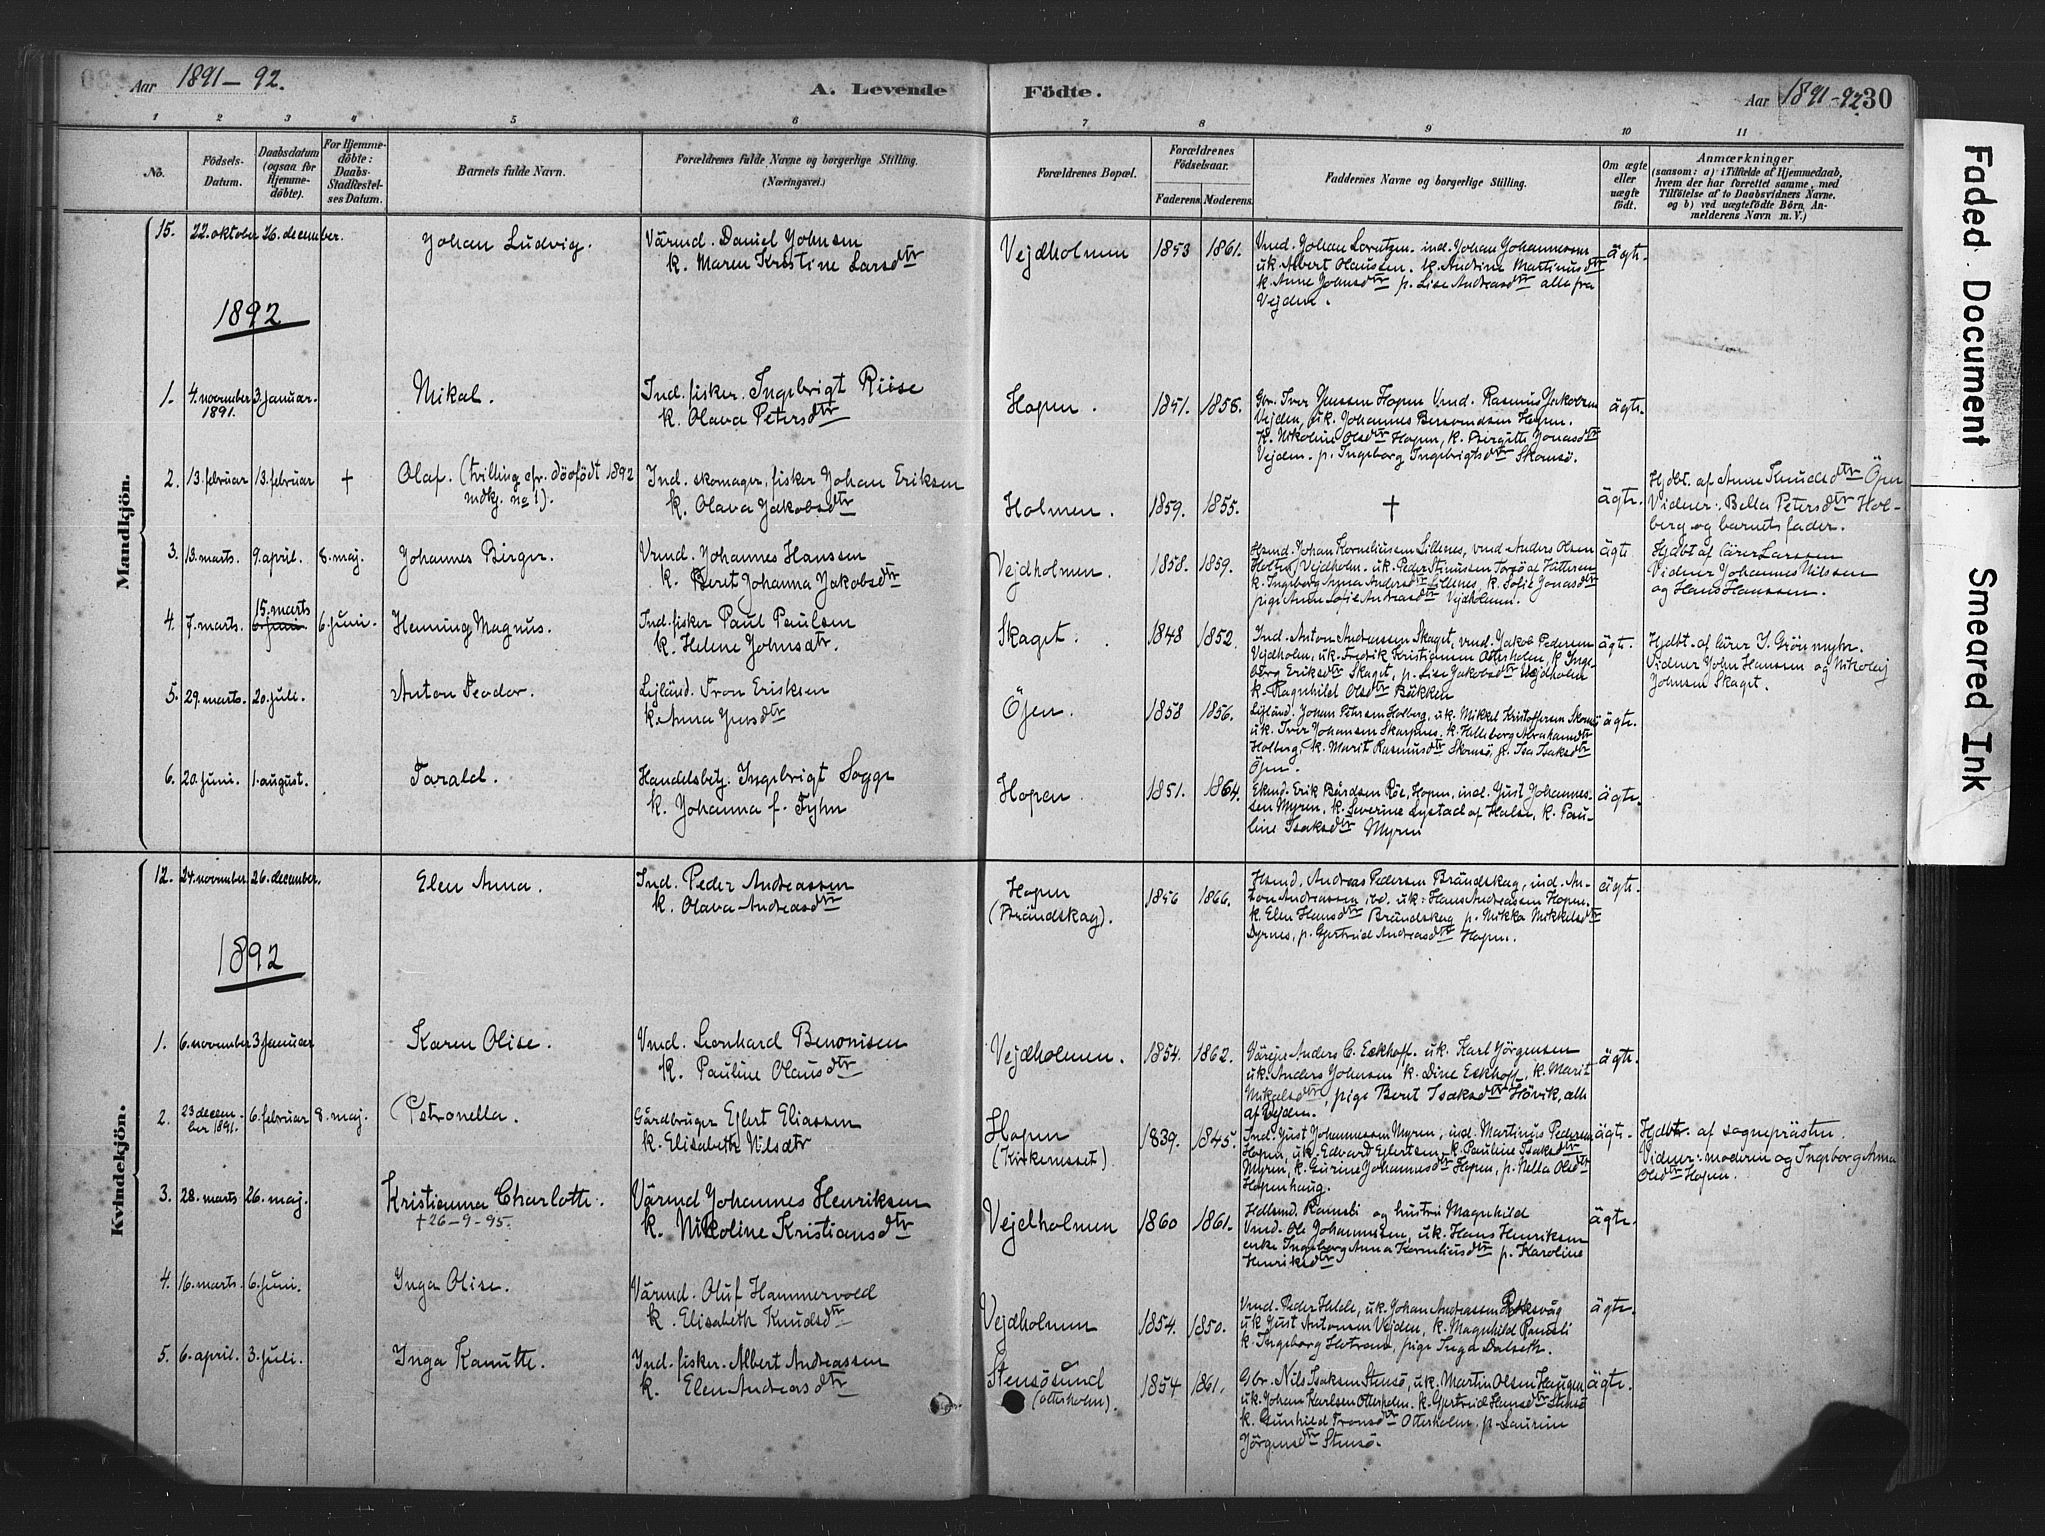 Aar 1891-92.
A. Levende
Födte.
Aar 1891-92
30
1 2 3 4 5 6 7 8 9 10 11
No.
Födsels-Datum.
Daabsdatum (ogsaa for Hjemmedöbte).
For Hjemmedöbte: Daabs-Stadfæstelses Datum.
Barnets fulde Navn.
Forældrenes fulde Navne og borgerlige Stilling.
(Næringsvei.)
Forældrenes Bopæl.
Forældrenes Födselsaar.
Faderens. Moderens.
Faddernes Navne og borgerlige Stilling.
Om ægte eller uægte födt.
Anmærkninger
(saasom: a) i Tilfælde af Hjemmedaab,
hvem der har forrettet samme, med
Tilföielse af to Daabsvidners Navne.
og b) ved uægtefödte Börn, Anmelderens Navn m. V.)
Mandkjön.
15. 22. oktober 26. december. Johan Ludvig. Värmd. Daniel Johnsen
k. Maren Kristine Larsdtr
Vejdholmen 1853 1861.
Vmd. Johan Lorntzen. ind. Johan Johannesen
u.k. Albert Olaussen. k. Andrine Martinusdtr
k. Anne Johnsdtr p. Lise Andreasdtr alle fra
Vejden.
ägte.
1892
1. 4. november 1891. 3. Januar. Mikal. Ind. fisker. Ingebrigt Riise
k. Olava Petersdtr
Hopen. 1851. 1858.
Gbr. Iver Jenssen Hopen Vmd. Rasmus Jakobsen
Vejden, u.k. Johannes Hopen.
k. Nikoline Olsdtr Hopen, k. Birgitte Jonasdtr
Vejden. p. Ingeborg Ingebrigtsdtr Skomsö.
ägte.
2. 13. februar 13. februar + Olaf. (tvilling cfr. dödfödt 1892
mdkj. no 1).
Ind. skomager, fisker Johan Eriksen
k. Olava Jakobsdtr
Holmen. 1859. 1855. + ägte.
Hjdbt. af Anne Knudsdtr Öjen
Vidner: Bella Petersdtr Holberg og barnets fader.
3. 13. marts. 9. april. 8. maj. Johannes Birger. Vmd. Johannes Hanssen
k. Berit Johanna Jakobsdtr
Vejdholmen. 1858. 1859.
Hsmd. Johan Korneliussen Lillenes, vmd Anders Olsen
Holten Vejdholm. u.k. Peder Hitteren
k. Ingeborg Anna Andersdtr Lillenes, k. Sofie Jonasdtr
pige Anne Sofie Andreasdtr Vejdholmen.
ägte.
Hjdbt af lärer Larssen
Vidner Johannes Nilssen
og Hans Hanssen.
4. 7. marts. 15. marts 6. juni 6. juni. Henning Magnus. Ind. fisker Paul Paulsen
k. Helene Johnsdtr.
Skaget. 1848 1852.
Ind. Anton Andreassen Skaget, vmd. Jakob Pedersen
Vejdholm, u.k. Fredrik Kristiansen Otterholm, p. Ingeborg Eriksdtr Skaget, p. Lise Jakobsdtr Vejdholm
k. Ragnhild Olsdtr Bakken
ägte.
Hjdbt. af lärer I. Grönmyhr.
Vidner John Hansen og Nikolaj
Johnsen Skaget.
5. 29. marts. 20. juli. Anton Teodor. Lejländ. Tron Eriksen
k. Anna Jensdtr
Öjen. 1858 1856.
Lejländ. Johan Petersen Holberg, u.k. Mikkel Kristoffersen
u.k. Iver Johansen Skarpnes, k. Abrahamsdtr
Holberg, k. Marit Rasmusdtr Skomsö, p. Isaksdtr
Öjen.
ägte.
6. 20. juni. 1. august. Tarald. Handelsbetj. Ingebrigt Sogge
k. Johanna f. Tyhn
Hopen. 1851. 1864.
Erik Bårdsen Röe, Hopen, ind. Just Johannessen Myren, k. Severine Lystad af Halse, k. Pauline Isaksdtr Myren
ägte.
Kvindekjön.
12. 24. november 26. december. Elen Anna. Ind. Peder Andreassen
k. Olava Andreasdtr
Hopen
(Brändskag). 1856 1866.
Hsmd. Andreas Pedersen Brändskag, ind. Anton Andreassen ibd. u.k. Hans Andreassen Hopen.
k. Elen Hansdtr Brändskag p. Mikka Mikkelsdtr
Dyrnes, p. Gjertrud Andreasdtr Hopen.
ägte.
1892
1. 6. november 3. Januar Karen Olise. Vmd. Leonhard Benonisen
k. Pauline Olausdtr
Vejdholmen. 1854. 1862.
Värejer Anders C. Eckhoff. u.k. Karl Jörgensen
u.k. Anders Johnsen k. Dine Eckhoff, k. Marit
Mikalsdtr, pige Berit Isaksdtr Hövik, alle
af Vejden.
ägte.
2. 23 december 1891. 6. februar 8. maj. Petronella. Gårdbruger Ejlert Eliassen
k. Elisabeth Nilsdtr
Hopen
(Kirkenesset) 1839. 1845.
Ind. Just Johannessen Myren, ind. Martinus Pedersen
Hopen, u.k. Edvard Ejlertsen, k. Pauline Isaksdtr
Myren, k. Gurine Johannesdtr Hopen, p. Nella Olsdtr
Hopenhaug.
ägte.
Hjdbt. af sognepräs­ten.
Vidner: moderen og Ingeborg Anna
Olsdtr Hopen.
3. 28. marts 26. maj. Kristianna Charlotte.
+ 26-9-95.
Värmd Johannes Henriksen
k. Nikoline Kristiansdtr
Vejdholmen 1860 1861.
Ramsli og hustru Magnhild
Vmd. Ole Johannessen, u.k. Hans Henriksen
enke Ingeborg Anna Korneliusdtr p. Karoline
Henriksdtr
ägte.
4. 16. marts. 6. juni. Inga Olise. Värmd. Oluf Hammervold
k. Elisabeth Knudsdtr
Vejdholmen 1854. 1850.
Vmd. Peder Helde, u.k. Johan Andreassen Roksvåg
u.k. Just Antonsen Vejden, k. Magnhild Ramsli
k. Ingeborg, pige Inga Dalseth.
ägte.
5. 6. april. 3. juli. Inga Kanutte. Ind. fisker. Albert Andreassen
k. Elen Andreasdtr
Stensösund
(Otterholm). 1854 1861.
Gbr. Nils Isaksen Stensö, u.k. Martin Olsen Haugen
u.k. Johan Karlsen Otterholm. k. Gjertrud Hansdtr Stensö
k. Gunhild Tronsdtr Otterholm, p. Laurine
Jörgensdtr Stensö.
ägte.
Faded Document Smeared Ink